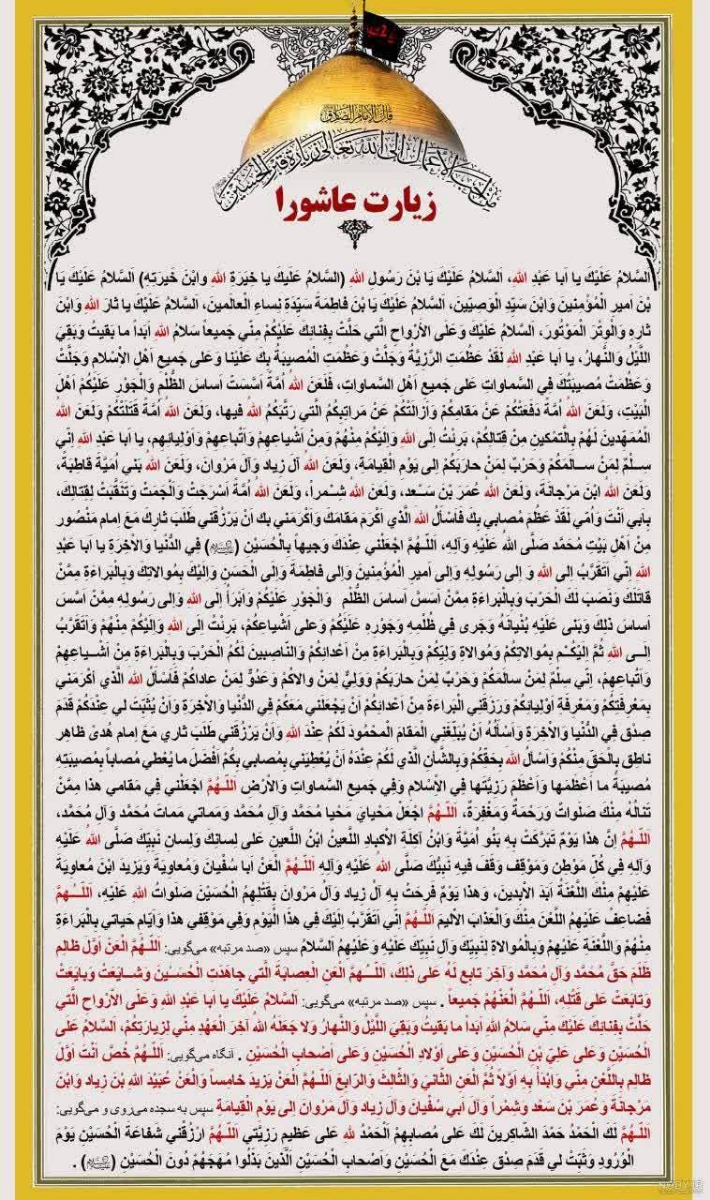 قال الإمام الصادق
زیارت عاشورا
اَلسَّلامُ عَلَيْكَ يا اَبا عَبْدِ اللهِ، اَلسَّلامُ عَلَيْكَ يَا بْنَ رَسُولِ اللهِ (السَّلامُ عَلَيكَ يا خِيَرَةِ اللهِ وابْنَ خَيرَتِهِ) اَلسَّلامُ عَلَيْكَ يَا
بْنَ اَميرِ الْمُؤْمِنينَ وَابْنَ سَيِّدِ الْوَصِيّينَ، اَلسَّلامُ عَلَيْكَ يَا بْنَ فاطِمَةَ سَيِّدَةِ نِساءِ الْعالَمينَ، اَلسَّلامُ عَلَيْكَ يا ثارَ اللهِ وَابْنَ
ثارِهِ وَالْوِتْرَ الْمَوْتُورَ، اَلسَّلامُ عَلَيْكَ وَعَلَى الْاَرْواحِ الَّتي حَلَّتْ بِفِنائِكَ عَلَيْكُمْ مِنّي جَميعاً سَلامُ اللهِ اَبَداً ما بَقيتُ وَبَقِيَ
اللَّيْلُ وَالنَّهارُ، يا اَبا عَبْدِ اللهِ لَقَدْ عَظُمَتِ الرَّزِيَّةُ وَجَلَّتْ وَعَظُمَتِ الْمُصيبَةُ بِكَ عَلَيْنا وَعَلى جَميعِ اَهْلِ الْاِسْلامِ وَجَلَّتْ
وَعَظُمَتْ مُصيبَتُكَ فِي السَّماواتِ عَلى جَميعِ اَهْلِ السَّماواتِ، فَلَعَنَ اللهُ اُمَّةً اَسَّسَتْ اَساسَ الظُّلْمِ وَالْجَوْرِ عَلَيْكُمْ اَهْلَ
الْبَيْتِ، وَلَعَنَ اللهُ اُمَّةً دَفَعَتْكُمْ عَنْ مَقامِكُمْ وَاَزالَتْكُمْ عَنْ مَراتِبِكُمُ الَّتي رَتَّبَكُمُ اللهُ فيها، وَلَعَنَ اللهُ اُمَّةً قَتَلَتْكُمْ وَلَعَنَ اللهُ
الْمُمَهِّدينَ لَهُمْ بِالتَّمْكينِ مِنْ قِتالِكُمْ، بَرِئْتُ اِلَى اللهِ وَاِلَيْكُمْ مِنْهُمْ وَمِنْ اَشْياعِهِمْ وَاَتْباعِهِمْ وَاَوْلِيائِهِم، يا اَبا عَبْدِ اللهِ اِنّي
سِلْمٌ لِمَنْ سالَمَكُمْ وَحَرْبٌ لِمَنْ حارَبَكُمْ اِلى يَوْمِ الْقِيامَةِ، وَلَعَنَ اللهُ آلَ زِياد وَآلَ مَرْوانَ، وَلَعَنَ اللهُ بَني اُمَيَّةَ قاطِبَةً،
وَلَعَنَ اللهُ ابْنَ مَرْجانَةَ، وَلَعَنَ اللهُ عُمَرَ بْنَ سَعْد، وَلَعَنَ اللهُ شِمْراً، وَلَعَنَ اللهُ اُمَّةً اَسْرَجَتْ وَاَلْجَمَتْ وَتَنَقَّبَتْ لِقِتالِكَ،
بِاَبي اَنْتَ وَاُمّي لَقَدْ عَظُمَ مُصابي بِكَ فَاَسْأَلُ اللهَ الَّذي اَكْرَمَ مَقامَكَ وَاَكْرَمَني بِكَ اَنْ يَرْزُقَني طَلَبَ ثارِكَ مَعَ اِمام مَنْصُور
مِنْ اَهْلِ بَيْتِ مُحَمَّد صَلَّى اللهُ عَلَيْهِ وَآلِهِ، اَللّهُمَّ اجْعَلْني عِنْدَكَ وَجيهاً بِالْحُسَيْنِ (عليه السلام) فِي الدُّنْيا وَالْاخِرَةِ يا اَبا عَبْدِ
اللهِ اِنّي اَتَقَرَّبُ اِلى اللهِ وَ اِلى رَسُولِهِ وَاِلى اَميرِ الْمُؤْمِنينَ وَاِلى فاطِمَةَ وَاِلَى الْحَسَنِ وَاِلَيْكَ بِمُوالاتِكَ وَبِالْبَراءَةِ مِمَّنْ
قاتَلَكَ وَنَصَبَ لَكَ الْحَرْبَ وَبِالْبَراءَةِ مِمَّنْ اَسَّسَ اَساسَ الظُّلْمِ وَالْجَوْرِ عَلَيْكُمْ وَاَبْرَأُ اِلَى اللهِ وَاِلى رَسُولِهِ مِمَّنْ اَسَّسَ
اَساسَ ذلِكَ وَبَنى عَلَيْهِ بُنْيانَهُ وَجَرى فِي ظُلْمِهِ وَجَوْرِهِ عَلَيْكُمْ وَعَلى اَشْياعِكُمْ، بَرِئْتُ اِلَى اللهِ وَاِلَيْكُمْ مِنْهُمْ وَاَتَقَرَّبُ
اِلَى اللهِ ثُمَّ اِلَيْكُمْ بِمُوالاتِكُمْ وَمُوالاةِ وَلِيِّكُمْ وَبِالْبَراءَةِ مِنْ اَعْدائِكُمْ وَالنّاصِبينَ لَكُمُ الْحَرْبَ وَبِالْبَراءَةِ مِنْ اَشْياعِهِمْ
وَاَتْباعِهِمْ، اِنّي سِلْمٌ لِمَنْ سالَمَكُمْ وَحَرْبٌ لِمَنْ حارَبَكُمْ وَوَلِيٌّ لِمَنْ والاكُمْ وَعَدُوٌّ لِمَنْ عاداكُمْ فَاَسْأَلُ اللهَ الَّذي اَكْرَمَني
بِمَعْرِفَتِكُمْ وَمَعْرِفَةِ اَوْلِيائِكُمْ وَرَزَقَنِي الْبَراءَةَ مِنْ اَعْدائِكُمْ اَنْ يَجْعَلَني مَعَكُمْ فِي الدُّنْيا وَالْاخِرَةِ وَاَنْ يُثَبِّتَ لي عِنْدَكُمْ قَدَمَ
صِدْق فِي الدُّنْيا وَالْاخِرَةِ وَاَسْأَلُهُ اَنْ يُبَلِّغَنِي الْمَقامَ الْمَحْمُودَ لَكُمْ عِنْدَ اللهِ وَاَنْ يَرْزُقَني طَلَبَ ثاري مَعَ اِمام هُدىً ظاهِر
ناطِق بِالْحَقِّ مِنْكُمْ وَاَسْأَلُ اللهَ بِحَقِّكُمْ وَبِالشَّأنِ الَّذي لَكُمْ عِنْدَهُ اَنْ يُعْطِيَني بِمُصابي بِكُمْ اَفْضَلَ ما يُعْطي مُصاباً بِمُصيبَتِهِ
مُصيبَةً ما اَعْظَمَها وَاَعْظَمَ رَزِيَّتَها فِي الْاِسْلامِ وَفِي جَميعِ السَّماواتِ وَالْاَرْضِ اَللّهُمَّ اجْعَلْني في مَقامي هذا مِمَّنْ
تَنالُهُ مِنْكَ صَلَواتٌ وَرَحْمَةٌ وَمَغْفِرَةٌ، اَللّهُمَّ اجْعَلْ مَحْيايَ مَحْيا مُحَمَّد وَآلِ مُحَمَّد وَمَماتي مَماتَ مُحَمَّد وَآلِ مُحَمَّد،
اَللّهُمَّ اِنَّ هذا يَوْمٌ تَبَرَّكَتْ بِهِ بَنُو اُمَيَّةَ وَابْنُ آكِلَةِ الْاَكبادِ اللَّعينُ ابْنُ اللَّعينِ عَلى لِسانِكَ وَلِسانِ نَبِيِّكَ صَلَّى اللهُ عَلَيْهِ
وَآلِهِ فِي كُلِّ مَوْطِن وَمَوْقِف وَقَفَ فيهِ نَبِيُّكَ صَلَّى اللهُ عَلَيْهِ وَآلِهِ اَللّهُمَّ الْعَنْ اَبا سُفْيانَ وَمُعاوِيَةَ وَيَزيدَ ابْنَ مُعاوِيَةَ
عَلَيْهِمْ مِنْكَ اللَّعْنَةُ اَبَدَ الْابِدينَ، وَهذا يَوْمٌ فَرِحَتْ بِهِ آلُ زِياد وَآلُ مَرْوانَ بِقَتْلِهِمُ الْحُسَيْنَ صَلَواتُ اللهِ عَلَيْهِ، اَللّهُمَّ
فَضاعِفْ عَلَيْهِمُ اللَّعْنَ مِنْكَ وَالْعَذابَ الْاَليمَ اَللّهُمَّ اِنّي اَتَقَرَّبُ اِلَيْكَ في هذَا الْيَوْمِ وَفي مَوْقِفي هذا وَاَيّامِ حَياتي بِالْبَراءَةِ
مِنْهُمْ وَاللَّعْنَةِ عَلَيْهِمْ وَبِالْمُوالاةِ لِنَبِيِّكَ وَآلِ نَبِيِّكَ عَلَيْهِ وَعَلَيْهِمُ اَلسَّلامُ سپس «صد مرتبه» می‌گویی: اَللّهُمَّ الْعَنْ اَوَّلَ ظالِم
ظَلَمَ حَقَّ مُحَمَّد وَآلِ مُحَمَّد وَآخِرَ تابِع لَهُ عَلى ذلِكَ، اَللّهُمَّ الْعَنِ الْعِصابَةَ الَّتي جاهَدَتِ الْحُسَيْنَ وَشايَعَتْ وَبايَعَتْ
وَتابَعَتْ عَلى قَتْلِهِ، اَللّهُمَّ الْعَنْهُمْ جَميعاً . سپس «صد مرتبه» می‌گویی: اَلسَّلامُ عَلَيْكَ يا اَبا عَبْدِ اللهِ وَعَلَى الْاَرْواحِ الَّتي
حَلَّتْ بِفِنائِكَ عَلَيْكَ مِنّي سَلامُ اللهِ اَبَداً ما بَقيتُ وَبَقِيَ اللَّيْلُ وَالنَّهارُ وَلا جَعَلَهُ اللهُ آخِرَ الْعَهْدِ مِنّي لِزِيارَتِكُمْ، اَلسَّلامُ عَلَى
الْحُسَيْنِ وَعَلى عَلِيِّ بْنِ الْحُسَيْنِ وَعَلى اَوْلادِ الْحُسَيْنِ وَعَلى اَصْحابِ الْحُسَيْنِ . آنگاه می‌گویی: اَللّهُمَّ خُصَّ اَنْتَ اَوَّلَ
ظالِم بِاللَّعْنِ مِنّي وَابْدَأْ بِهِ اَوَّلاً ثُمَّ الْعَنِ الثّانيَ وَالثّالِثَ وَالرّابِعَ اَللّهُمَّ الْعَنْ يَزيدَ خامِساً وَالْعَنْ عُبَيْدَ اللهِ بْنَ زِياد وَابْنَ
مَرْجانَةَ وَعُمَرَ بْنَ سَعْد وَشِمْراً وَآلَ اَبي سُفْيانَ وَآلَ زِياد وَآلَ مَرْوانَ اِلى يَوْمِ الْقِيامَةِ سپس به سجده می‌روی و می‌گویی:
اَللّهُمَّ لَكَ الْحَمْدُ حَمْدَ الشّاكِرينَ لَكَ عَلى مُصابِهِمْ اَلْحَمْدُ للهِ عَلى عَظيمِ رَزِيَّتي اَللّهُمَّ ارْزُقْني شَفاعَةَ الْحُسَيْنِ يَوْمَ
الْوُرُودِ وَثَبِّتْ لي قَدَمَ صِدْق عِنْدَكَ مَعَ الْحُسَيْنِ وَاَصْحابِ الْحُسَيْنِ اَلَّذينَ بَذَلُوا مُهَجَهُمْ دُونَ الْحُسَيْنِ (عليه السلام) .